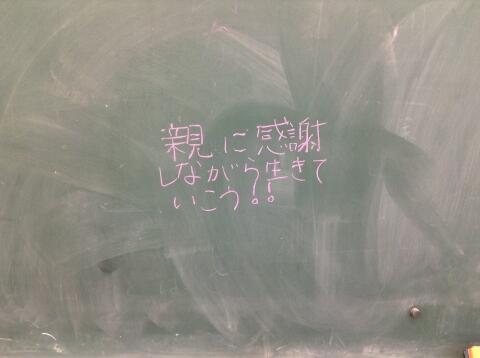 親に感謝
しながら生きて
いこう!!